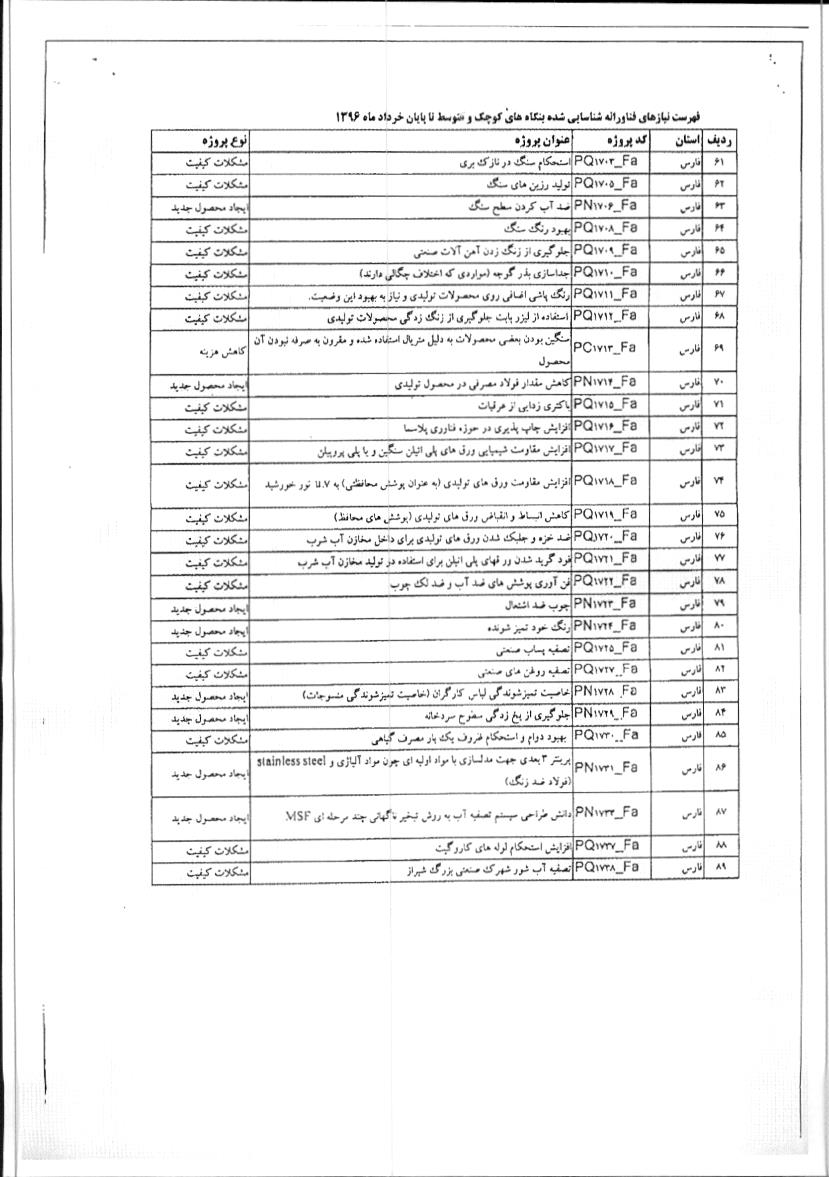 فهرست نیازهای فناورانه شناسایی شده بنگاه های کوچک و متوسط تا پایان خرداد ماه ۱۳۹۶
ردیف استان کد پروژه عنوان پروژه نوع پروژه
۶۱ فارس PQ۱۷۰۳_Fa استحکام سنگ در نازک بری مشکلات کیفیت
۶۲ فارس PQ۱۷۰۵_Fa تولید رزین های سنگ مشکلات کیفیت
۶۳ فارس PN۱۷۰۶_Fa ضد آب کردن سطح سنگ ایجاد محصول جدید
۶۴ فارس PQ۱۷۰۸_Fa بهبود رنگ سنگ مشکلات کیفیت
۶۵ فارس PQ۱۷۰۹_Fa جلوگیری از زنگ زدن آهن آلات صنعتی مشکلات کیفیت
۶۶ فارس PQ۱۷۱۰_Fa جداسازی بذر گوجه (مواردی که اختلاف چگالی دارند) مشکلات کیفیت
۶۷ فارس PQ۱۷۱۱_Fa رنگ پاشی اضافی روی محصولات تولیدی و نیاز به بهبود این وضعیت. مشکلات کیفیت
۶۸ فارس PQ۱۷۱۲_Fa استفاده از لیزر بابت جلوگیری از زنگ زدگی محصولات تولیدی مشکلات کیفیت
۶۹ فارس PC۱۷۱۳_Fa سنگین بودن بعضی محصولات به دلیل متریال استفاده شده و مقرون به صرفه نبودن آن کاهش هزینه
محصول
۷۰ فارس PN۱۷۱۴_Fa کاهش مقدار فولاد مصرفی در محصول تولیدی ایجاد محصول جدید
۷۱ فارس PQ۱۷۱۵_Fa باکتری زدایی از عرقیات مشکلات کیفیت
۷۲ فارس PQ۱۷۱۶_Fa افزایش چاپ پذیری در حوزه فناوری پلاسما مشکلات کیفیت
۷۳ فارس PQ۱۷۱۷_Fa افزایش مقاومت شیمیایی ورق های پلی اتیلن سنگین و یا پلی پروپیلن مشکلات کیفیت
۷۴ فارس PQ۱۷۱۸_Fa افزایش مقاومت ورق های تولیدی (به عنوان پوشش محافظتی) به u.v نور خورشید مشکلات کیفیت
۷۵ فارس PQ۱۷۱۹_Fa کاهش انبساط و انقباض ورق های تولیدی (پوشش های محافظ) مشکلات کیفیت
۷۶ فارس PQ۱۷۲۰_Fa ضد خزه و جلبک شدن ورق های تولیدی برای داخل مخازن آب شرب مشکلات کیفیت
۷۷ فارس PQ۱۷۲۱_Fa فود گرید شدن ورقهای پلی اتیلن برای استفاده در تولید مخازن آب شرب مشکلات کیفیت
۷۸ فارس PQ۱۷۲۲_Fa فن آوری پوشش های ضد آب و ضد لک چوب مشکلات کیفیت
۷۹ فارس PN۱۷۲۳_Fa چوب ضد اشتعال ایجاد محصول جدید
۸۰ فارس PN۱۷۲۴_Fa رنگ خود تمیز شونده ایجاد محصول جدید
۸۱ فارس PQ۱۷۲۵_Fa تصفیه پساب صنعتی مشکلات کیفیت
۸۲ فارس PQ۱۷۲۷_Fa تصفیه روغن های صنعتی مشکلات کیفیت
۸۳ فارس PN۱۷۲۸_Fa خاصیت تمیزشوندگی لباس کارگران (خاصیت تمیزشوندگی منسوجات) ایجاد محصول جدید
۸۴ فارس PN۱۷۲۹_Fa جلوگیری از یخ زدگی سطوح سردخانه ایجاد محصول جدید
۸۵ فارس PQ۱۷۳۰_Fa بهبود دوام و استحکام ظروف یک بار مصرف گیاهی مشکلات کیفیت
۸۶ فارس PN۱۷۳۱_Fa پرینتر ۳ بعدی جهت مدلسازی با مواد اولیه ای چون مواد آلیاژی و stainless steel ایجاد محصول جدید
(فولاد ضد زنگ)
۸۷ فارس PN۱۷۳۳_Fa دانش طراحی سیستم تصفیه آب به روش تبخیر ناگهانی چند مرحله ای MSF ایجاد محصول جدید
۸۸ فارس PQ۱۷۳۷_Fa افزایش استحکام لوله های کاروگیت مشکلات کیفیت
۸۹ فارس PQ۱۷۳۸_Fa تصفیه آب شور شهرک صنعتی بزرگ شیراز مشکلات کیفیت